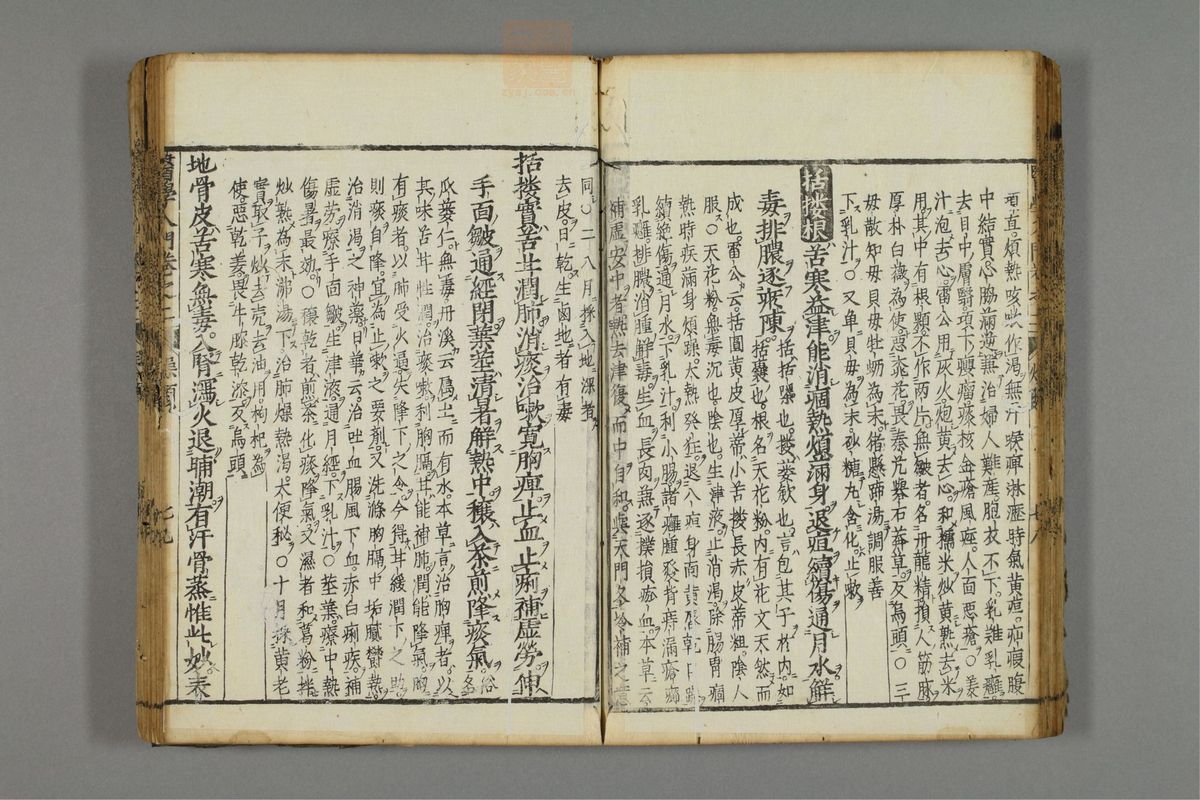 中結實心脇滿逆無治婦人難産胞衣不下乳難乳癰
去目中膚翳項下癭瘤痰核金瘡風痙人面惡瘡○薑
汁泡去心雷公用灰火炮黄去心和糯米炒黄熟去米
用其中有根顆不作兩片無皺者名丹龍精損人筋脉
厚朴白薇為使惡桃花畏秦艽礬石莽草反烏頭○三
母散知母貝母牡蠣為末猪懸蹄湯調服善
下乳汁○又單貝母為末砂糖丸含化止嗽
括樓根苦寒益津能消渴熱煩滿身退疸續傷通月水解
毒排膿逐瘀陳括括囊也樓蔞歛也言包其子於内如
括嚢也根名天花粉内有花文天然而
成也雷公云括圓黄皮厚蒂小苦樓長赤皮蒂粗陰人
服○天花粉無毒沉也陰也生津液止消渴除腸胃痼
熱時疾滿身煩躁大熱發狂退八疸身面黄唇乾口燥
續絶傷通月水下乳汁利小腸諸癰腫發背痔漏瘡癤
乳癰排膿消腫解毒生肌長肉兼逐撲損瘀血本草云
補虚安中者熱去津復而中自和與天門冬冷補之意
同○二八月採入地深者
去皮日乾生鹵地者有毒
括樓實苦甘潤肺消痰治嗽寛胸痺止血止痢補虛勞伸
手面皺通經閉葉莖清暑解熱中穰入茶煎降痰氣俗名
瓜蔞仁無毒丹溪云屬土而有水本草言治胸痺者以
其味苦甘性潤治痰嗽利胸膈甘能補肺潤能降氣胸
有痰者以肺受火逼失降下之令今得甘緩潤下之助
則痰自降宜為止嗽之要劑又洗滌胸膈中垢膩鬱熱
治消渴之神藥日華云治吐血腸風下血赤白痢疾補
虛勞療手面皺生津液通月經下乳汁○莖葉療中熱
傷暑最効○穰乾者煎茶化痰降氣又濕者和葛粉拌
炒熟為末沸湯下治肺燥熱渴大便秘○十月採黄老
實取子炒去壳去油用枸杞為
使惡乾姜畏牛膝乾漆反烏頭
地骨皮苦寒無毒入腎瀉火退晡潮有汗骨蒸惟此妙表
醫學入門卷之二